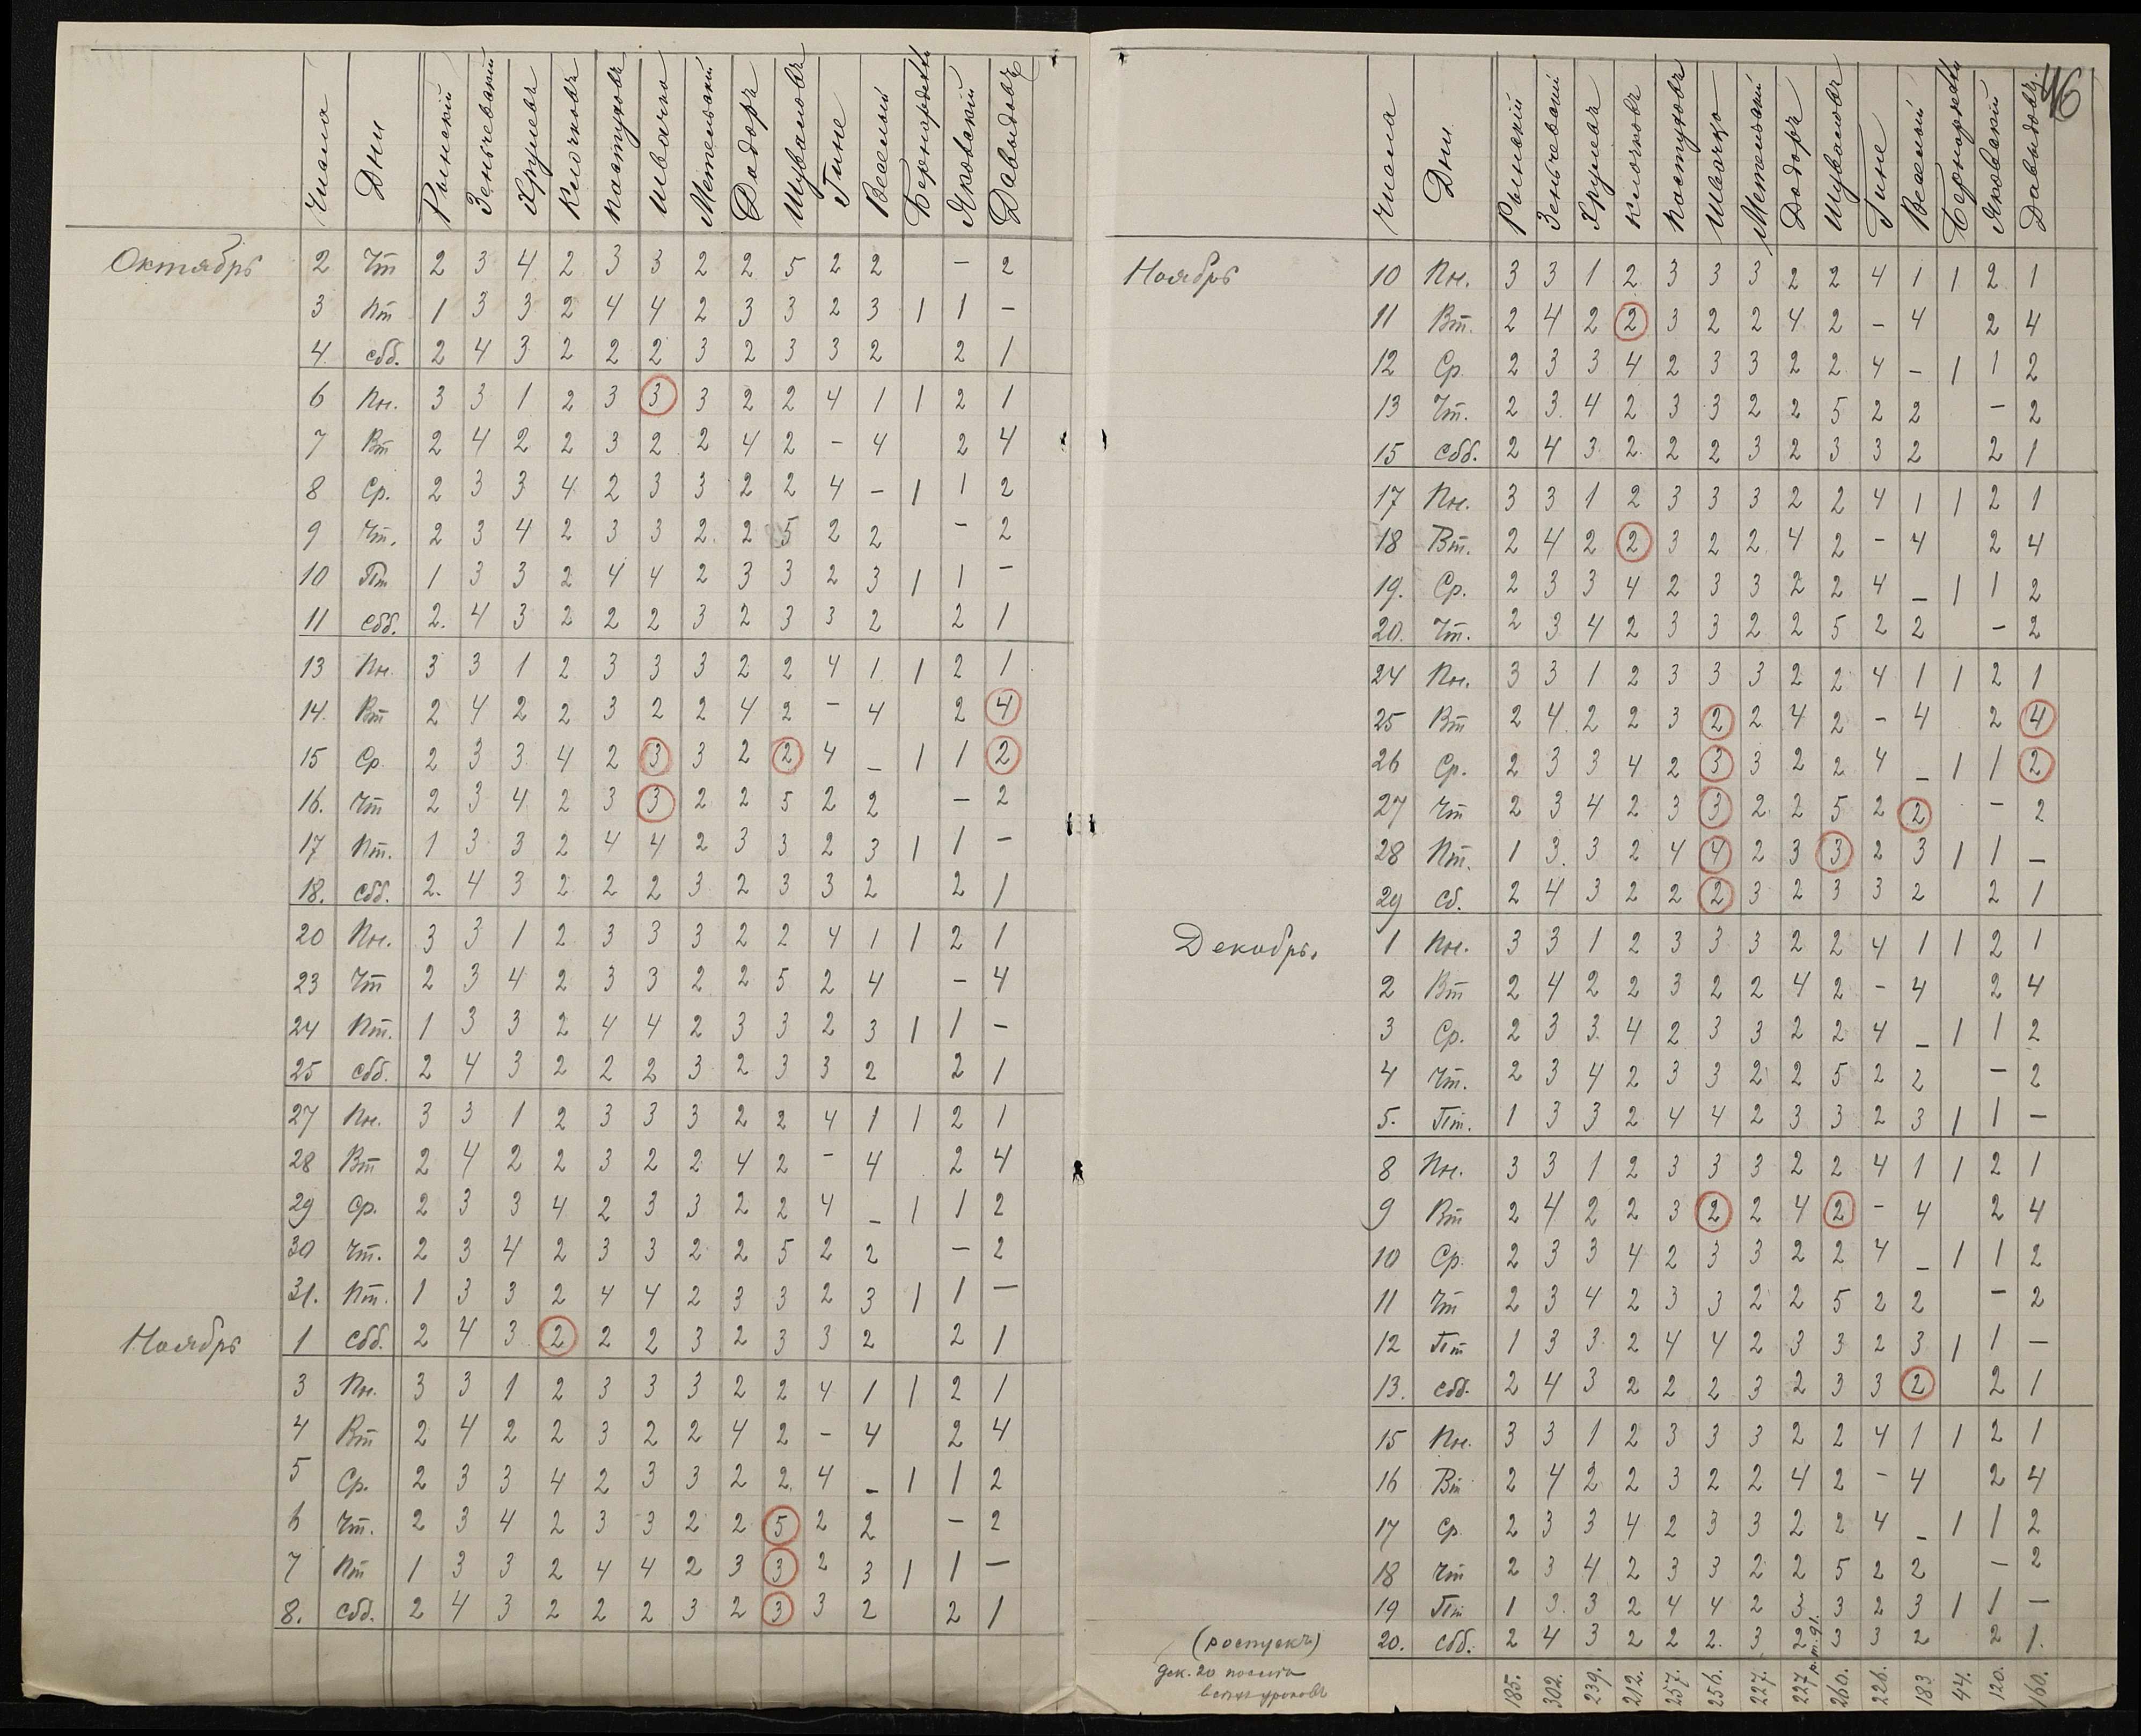 Числа Дни Рынскій Зеньчевскій Хрулевъ Клочковъ Пастуховъ Швачко Метельскій Дадоръ Шуваловъ Гине Веселый Яновскій Давыдовъ
Октябрь 2 Чт 2 3 4 2 3 3 2 2 5 2 2 – 2
3 Пт 1 3 3 2 4 4 2 3 3 2 3 1 1 –
4 Сбб. 2 4 3 2 2 2 3 2 3 3 2 2 1
6 Пн. 3 3 1 2 3 3 3 2 2 4 1 1 2 1
7 Вт 2 4 2 2 3 2 2 4 2 – 4 2 4
8 Ср. 2 3 3 4 2 3 3 2 2 4 – 1 1 2
9 Чт. 2 3 4 2 3 3 2 2 5 2 2 – 2
10 Пт 1 3 3 2 4 4 2 3 3 2 3 1 1 –
11 Сбб. 2. 4 3 2 2 2 3 2 3 3 2 2 1
13 Пн. 3 3 1 2 3 3 3 2 2 4 1 1 2 1
14. Вт 2 4 2 2 3 2 2 4 2 – 4 2 4
15 Ср. 2 3 3 4 2 3 3 2 2 4 – 1 1 2
16. Чт 2 3 4 2 3 3 2 2 5 2 2 – 2
17 Пт. 1 3 3 2 4 4 2 3 3 2 3 1 1 –
18. Сбб. 2. 4 3 2 2 2 3 2 3 3 2 2 1
20 Пн. 3 3 1 2 3 3 3 2 2 4 1 1 2 1
23 Чт 2 3 4 2 3 3 2 2 5 2 4 – 4
24 Пт. 1 3 3 2 4 4 2 3 3 2 3 1 1 –
25 Сбб. 2 4 3 2 2 2 3 2 3 3 2 2 1
27 Пн. 3 3 1 2 3 3 3 2 2 4 1 1 2 1
28 Вт 2 4 2 2 3 2 2 4 2 – 4 2 4
29 Ср. 2 3 3 4 2 3 3 2 2 4 – 1 1 2
30 Чт. 2 3 4 2 3 3 2 2 5 2 2 – 2
31. Пт. 1 3 3 2 4 4 2 3 3 2 3 1 1 –
Ноябрь 1 Сбб. 2 4 3 2 2 2 3 2 3 3 2 2 1
3 Пн. 3 3 1 2 3 3 3 2 2 4 1 1 2 1
4 Вт 2 4 2 2 3 2 2 4 2 – 4 2 4
5 Ср. 2 3 3 4 2 3 3 2 2 4 – 1 1 2
6 Чт. 2 3 4 2 3 3 2 2 5 2 2 – 2
7 Пт 1 3 3 2 4 4 2 3 3 2 3 1 1 –
8. Сбб. 2 4 3 2 2 2 3 2 3 3 2 2 1
46
Числа Дни Рынскій Зеньчевскій Хрулевъ Клочковъ Пастуховъ Швачко Метельскій Дадоръ Шуваловъ Гине Веселый Яновскій Давыдовъ
Ноябрь 10 Пн. 3 3 1 2 3 3 3 2 2 4 1 1 2 1
11 Вт. 2 4 2 2 3 2 2 4 2 – 4 2 4
12 Ср. 2 3 3 4 2 3 3 2 2 4 – 1 1 2
13 Чт. 2 3 4 2 3 3 2 2 5 2 2 – 2
15 Сбб. 2 4 3 2 2 2 3 2 3 3 2 2 1
17 Пн. 3 3 1 2 3 3 3 2 2 4 1 1 2 1
18 Вт. 2 4 2 2 3 2 2 4 2 – 4 2 4
19. Ср. 2 3 3 4 2 3 3 2 2 4 – 1 1 2
20. Чт. 2 3 4 2 3 3 2 2 5 2 2 – 2
24 Пн. 3 3 1 2 3 3 3 2 2 4 1 1 2 1
25 Вт 2 4 2 2 3 2 2 4 2 – 4 2 4
26 Ср. 2 3 3 4 2 3 3 2 2 4 – 1 1 2
27 Чт 2 3 4 2 3 3 2 2 5 2 2 – 2
28 Пт. 1 3 3 2 4 4 2 3 3 2 3 1 1 –
29 Сб. 2 4 3 2 2 2 3 2 3 3 2 2 1
Декабрь. 1 Пн. 3 3 1 2 3 3 3 2 2 4 1 1 2 1
2 Вт 2 4 2 2 3 2 2 4 2 – 4 2 4
3 Ср. 2 3 3 4 2 3 3 2 2 4 – 1 1 2
4 Чт. 2 3 4 2 3 3 2 2 5 2 2 – 2
5. Пт. 1 3 3 2 4 4 2 3 3 2 3 1 1 –
8 Пн. 3 3 1 2 3 3 3 2 2 4 1 1 2 1
9 Вт 2 4 2 2 3 2 2 4 2 – 4 2 4
10 Ср. 2 3 3 4 2 3 3 2 2 4 – 1 1 2
11 Чт 2 3 4 2 3 3 2 2 5 2 2 – 2
12 Пт 1 3 3 2 4 4 2 3 3 2 3 1 1 –
13. Сбб. 2 4 3 2 2 2 3 2 3 3 2 2 1
15 Пн. 3 3 1 2 3 3 3 2 2 4 1 1 2 1
16 Вт 2 4 2 2 3 2 2 4 2 – 4 2 4
17 Ср. 2 3 3 4 2 3 3 2 2 4 – 1 1 2
18 Чт 2 3 4 2 3 3 2 2 5 2 2 – 2
19 Пт 1 3 3 2 4 4 2 3 3 2 3 1 1 –
(роспускъ) 20. Сбб. 2 4 3 2 2 2. 3 2 3 3 2 2 1.
дек. 20 после
185. 302. 239. 212. 257. 256. 227. 227 260. 226. 183 44. 120. 160.